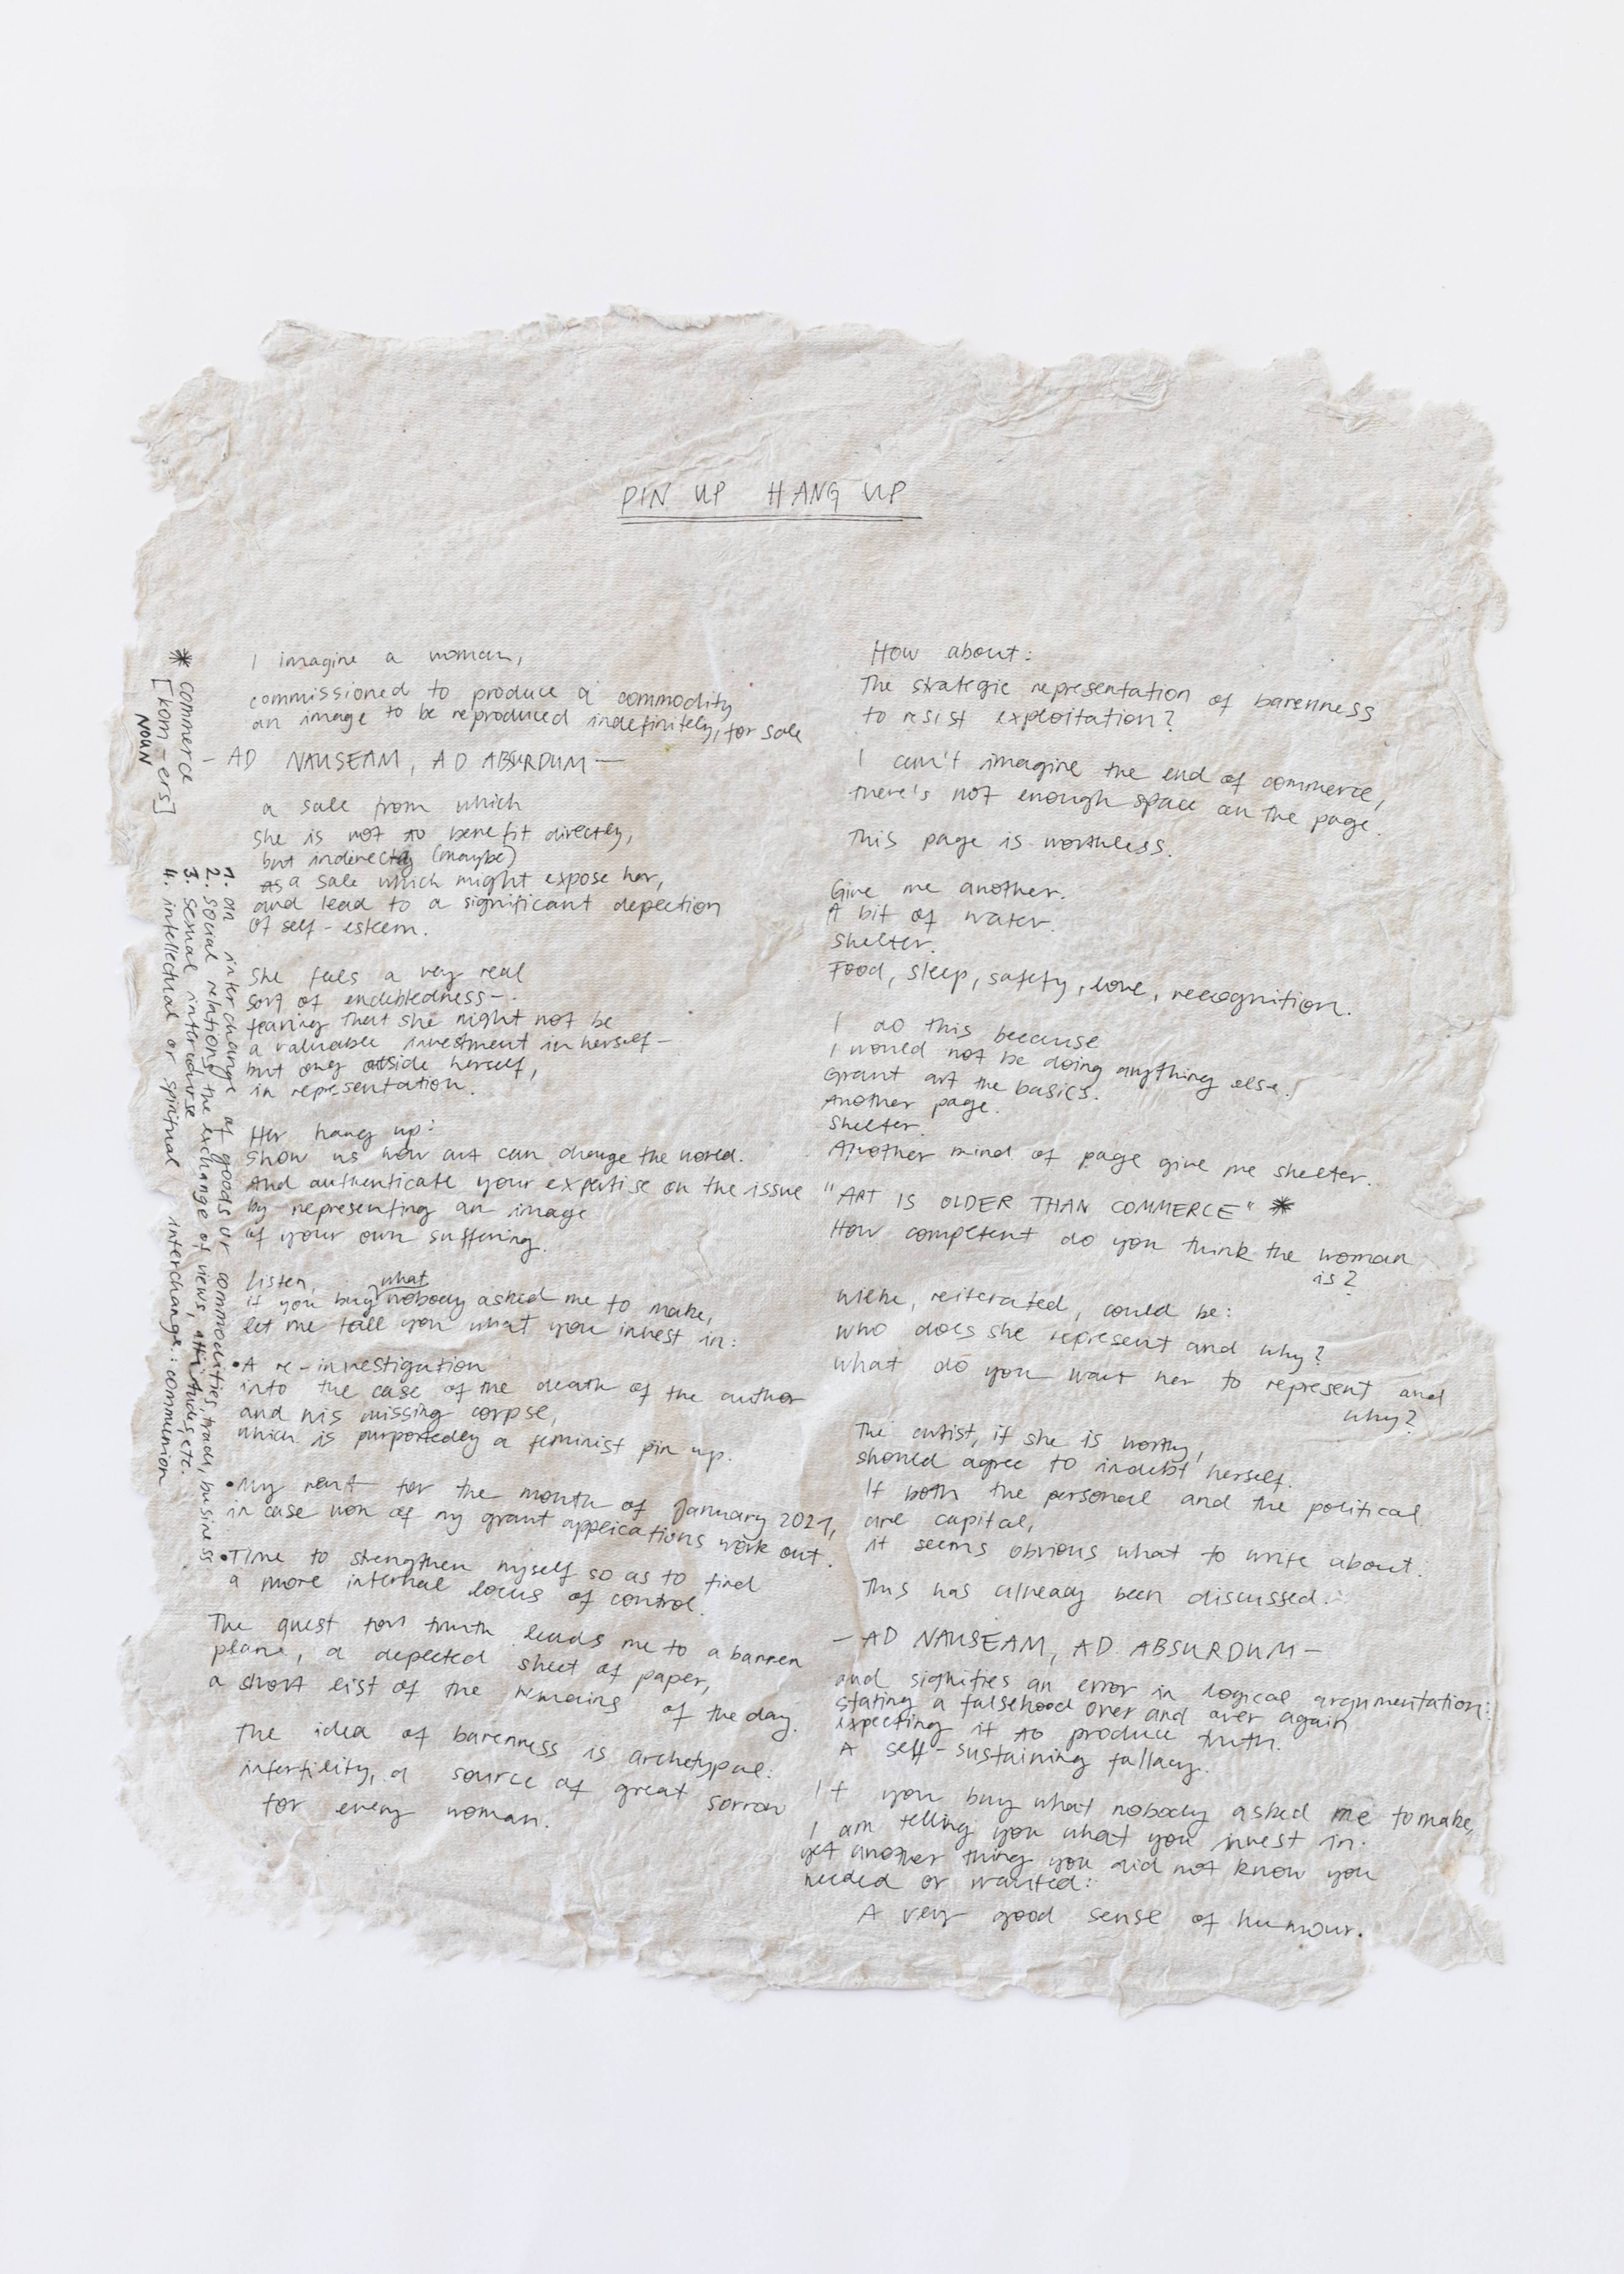 PIN UP HANG UP
I imagine a woman,
commissioned to produce a commodity
an image to be reproduced indefinitely, for sale
– AD NAUSEAM, AD ABSURDUM —
a sale from which
she is not to benefit directly,
but indirectly (maybe)
as a sale which might expose her,
and lead to a significant depection
of self-esteem.
She feels a very real
sort of endebtedness –
fearing that she might not be
a valuable investment in herself –
but only outside herself,
in representation.
Her hang up:
Show us how art can change the world.
And authenticate your expertise on the issue
by representing an image
of your own suffering.
Listen,
if you buy what nobody asked me to make,
let me tell you what you invest in:
• A re-investigation
into the case of the death of the author
and his missing corpse,
which is purportedly a feminist pin up.
• My rent for the month of January 2021,
in case non of my grant applications work out.
• Time to strengthen myself so as to find
a more internal locus of control.
The quest for truth leads me to a barren
plane, a depected sheet of paper,
a short list of the remains of the day.
The idea of barenness is archetypal:
infertility, a source of great sorrow
for every woman.
* commerce
[kom-ers]
NOUN
1. an interchange of goods or commodities, trade, business
2. social relations, the exchange of views, attitudes, etc.
3. sexual intercourse
4. intellectual or spiritual interchange: communion
How about:
The strategic representation of barenness
to resist exploitation?
I can't imagine the end of commerce,
there's not enough space on the page.
This page is worthless.
Give me another.
A bit of water.
Shelter.
Food, sleep, safety, love, recognition.
I do this because
I would not be doing anything else.
Grant art the basics.
Another page.
Shelter.
Another kind of page give me shelter.
"ART IS OLDER THAN COMMERCE" *
How competent do you think the woman
is?
Which, reiterated, could be:
Who does she represent and why?
What do you want her to represent and
why?
The artist, if she is worthy,
should agree to indebt herself.
If both the personal and the political
are capital,
it seems obvious what to write about.
This has already been discussed.
– AD NAUSEAM, AD ABSURDUM –
and signifies an error in logical argumentation:
stating a falsehood over and over again
expecting it to produce truth.
A self-sustaining fallacy.
If you buy what nobody asked me to make,
I am telling you what you invest in.
yet another thing you did not know you
needed or wanted:
A very good sense of humour.